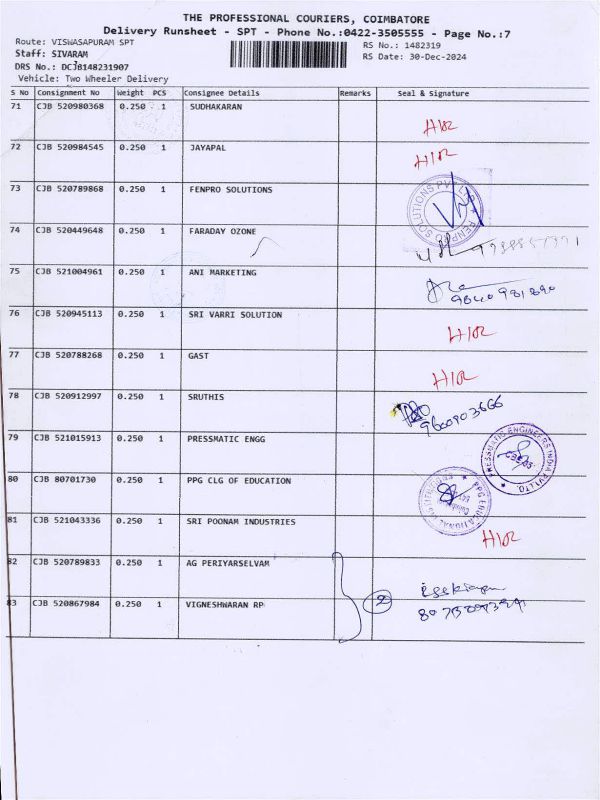 THE PROFESSIONAL COURIERS, COIMBATORE
Delivery Runsheet - SPT - Phone No.:0422-3505555 - Page No.:7
Route: VISWASAPURAM SPT
RS No.: 1482319
Staff: SIVARAM
RS Date: 30-Dec-2024
DRS No.: DCJB148231907
Vehicle: Two Wheeler Delivery
S No Consignment No Weight PCS Consignee Details Remarks Seal & Signature
71 CJB 520980368 0.250 1 SUDHAKARAN
72 CJB 520984545 0.250 1 JAYAPAL
73 CJB 520789868 0.250 1 FENPRO SOLUTIONS
74 CJB 520449648 0.250 1 FARADAY OZONE
75 CJB 521004961 0.250 1 ANI MARKETING
76 CJB 520945113 0.250 1 SRI VARRI SOLUTION
77 CJB 520788268 0.250 1 GAST
78 CJB 520912997 0.250 1 SRUTHIS
9600903666
79 CJB 521015913 0.250 1 PRESSMATIC ENGG
PRESSMATIC ENGINEERS INDIA PVT LTD.
80 CJB 80701730 0.250 1 PPG CLG OF EDUCATION
81 CJB 521043336 0.250 1 SRI POONAM INDUSTRIES
82 CJB 520789833 0.250 1 AG PERIYARSELVAM
83 CJB 520867984 0.250 1 VIGNESHWARAN RP
2